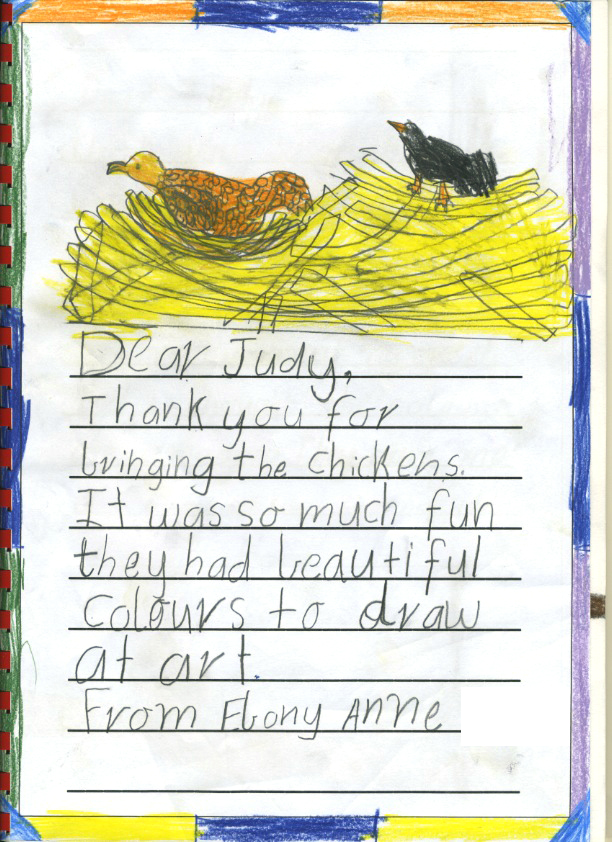 Dear Judy,
Thank you for
bringing the chickens.
It was so much fun
they had beautiful
colours to draw
at art.
From Ebony Anne